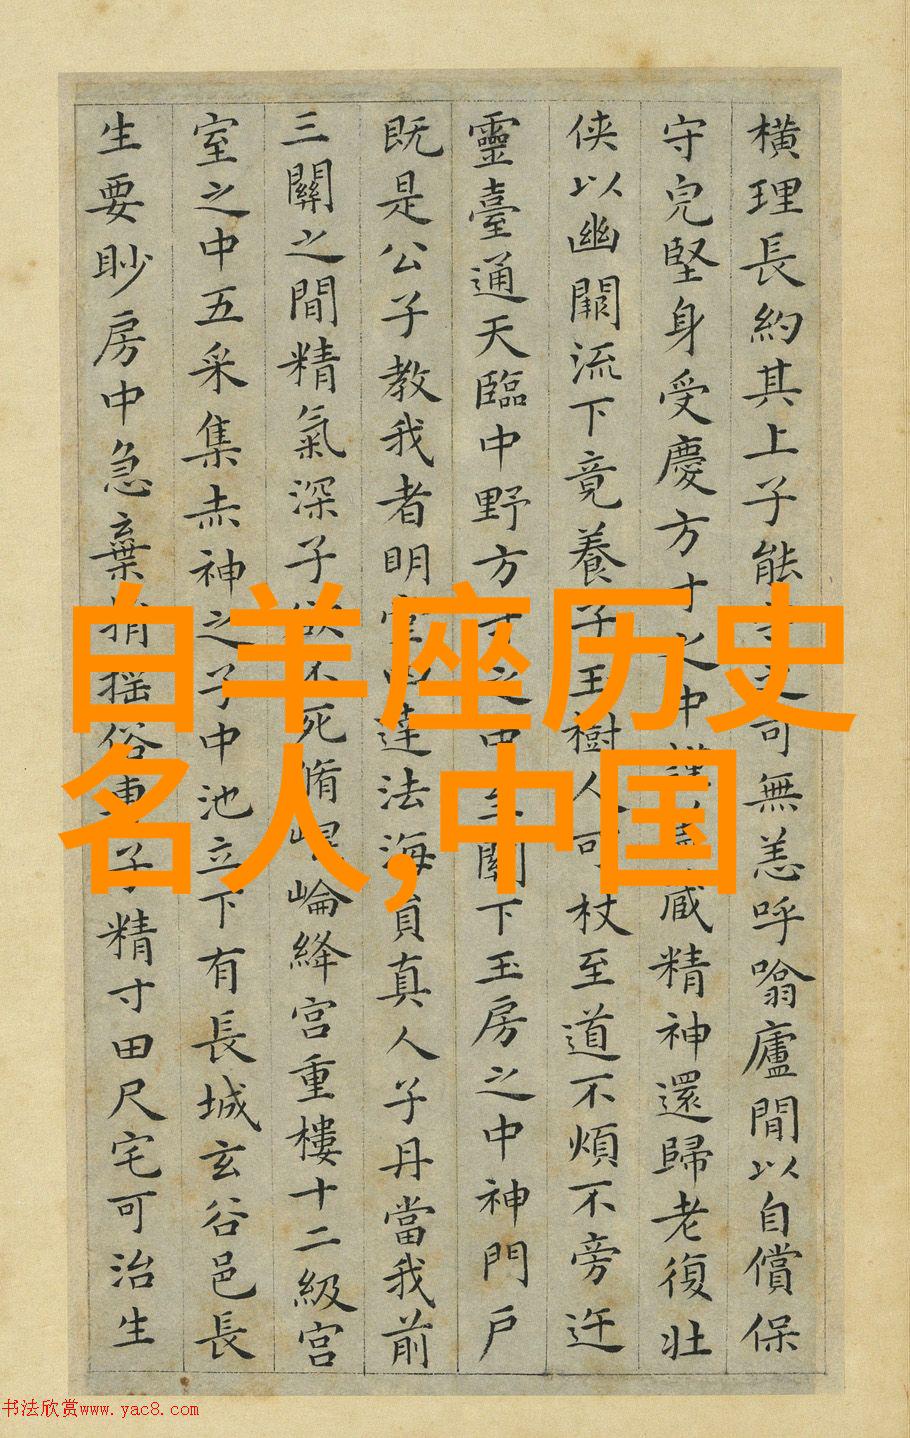 橫理長約其上子能之可無恙呼噏廬間以自償保
守皃堅身受慶方寸之中藏精神還歸老復壯
俠以幽闕流下竟養子玉樹人可杖至道不煩不旁迕
靈臺通天臨中野方寸之中關下玉房之中神門戶
既是公子教我者明堂四達法海員真人子丹當我前
三關之間精氣深子欲不死脩崐崘絳宮重樓十二級宮
室之中五采集赤神之子中池立下有長城玄谷邑長
生要眇房中急棄捐搖俗專子精寸田尺宅可治生
白羊座历史
名人,中国
书法欣赏www.yac8.com